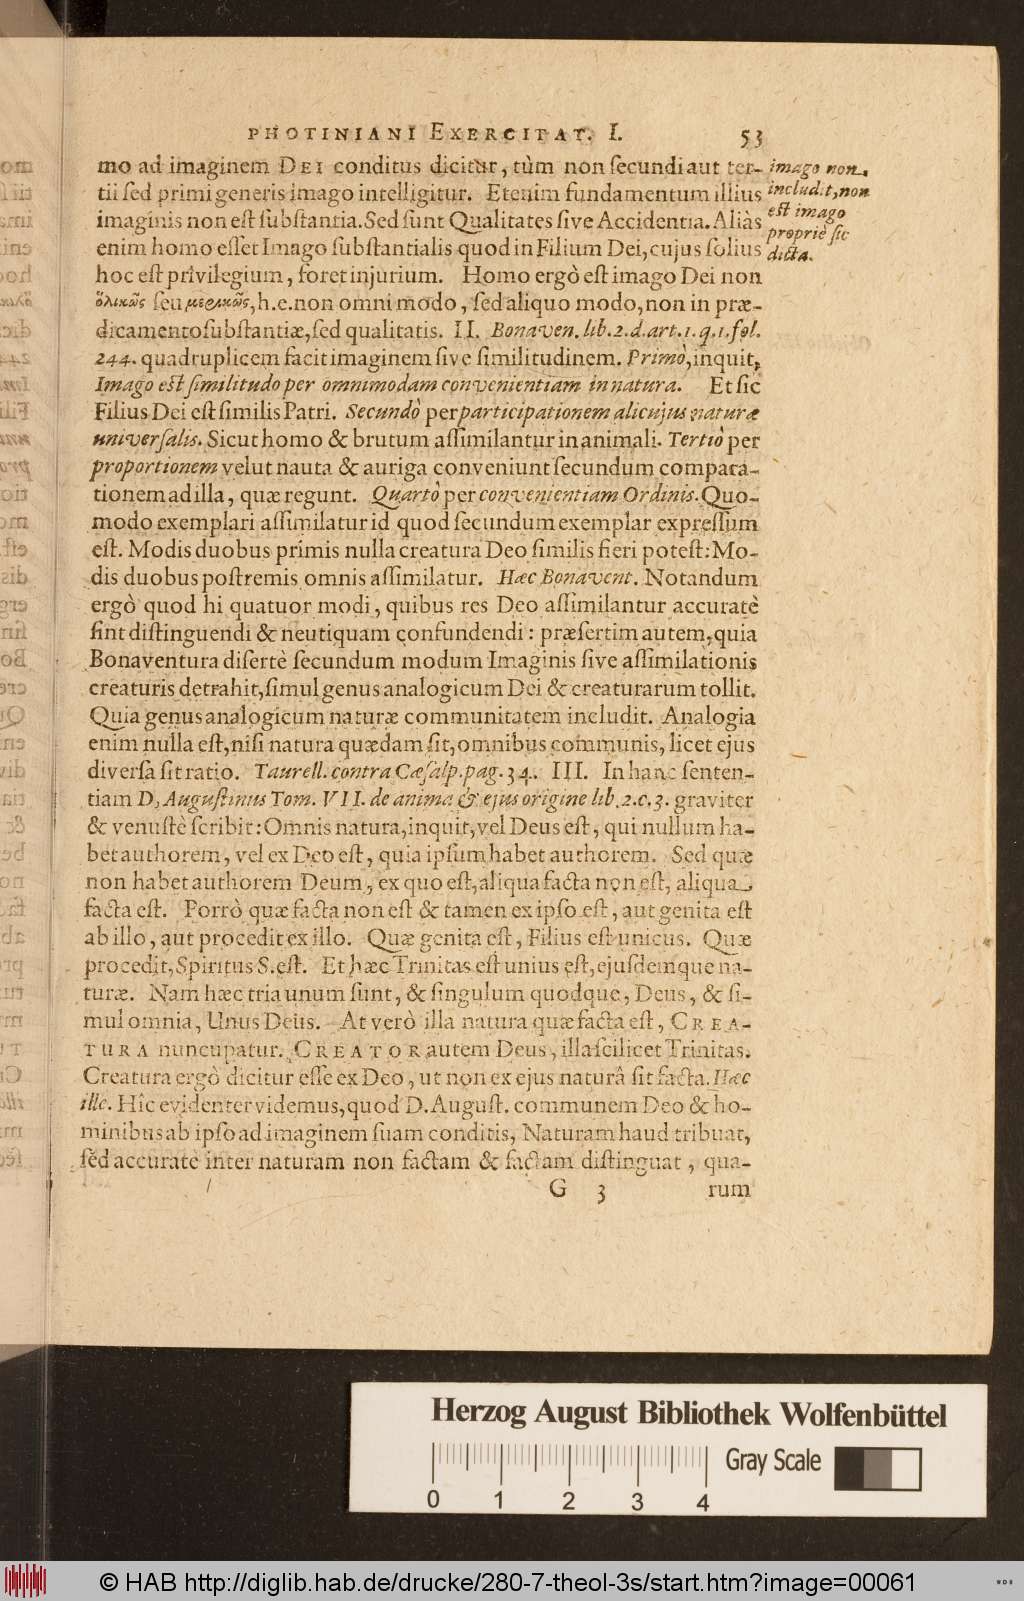 PHOTINIANI EXERCITAT. I. 53
mo ad imaginem DEI conditus dicitur, tùm non ſecundi aut ter-
tii ſed primi generis imago intelligitur. Etenim fundamentum illius
imaginis non eſt ſubſtantia. Sed ſunt Qualitates ſive Accidentia. Aliàs
enim homo eſſet Imago ſubſtantialis quod in Filium Dei, cujus ſolius
hoc eſt privilegium, foret injurium. Homo ergò eſt imago Dei non
ὁλικῶς ſeu μερικῶς, h.e. non omni modo, ſed aliquo modo, non in præ-
dicamento ſubſtantiæ, ſed qualitatis. II. Bonaven. lib. 2. d. art. 1. q. 1. fol.
244. quadruplicem facit imaginem ſive ſimilitudinem. Primò, inquit,
Imago eſt ſimilitudo per omnimodam convenientiam in natura. Et ſic
Filius Dei eſt ſimilis Patri. Secundò per participationem alicujus naturæ
univerſalis. Sicut homo & brutum aſſimilantur in animali. Tertiò per
proportionem velut nauta & auriga conveniunt ſecundum compara-
tionem ad illa, quæ regunt. Quartò per convenientiam Ordinis. Quo-
modo exemplari aſſimilatur id quod ſecundum exemplar expreſſum
eſt. Modis duobus primis nulla creatura Deo ſimilis fieri poteſt: Mo-
dis duobus poſtremis omnis aſſimilatur. Hæc Bonavent. Notandum
ergò quod hi quatuor modi, quibus res Deo aſſimilantur accuratè
ſint diſtinguendi & neutiquam confundendi: præſertim autem, quia
Bonaventura diſertè ſecundum modum Imaginis ſive aſſimilationis
creaturis detrahit, ſimul genus analogicum Dei & creaturarum tollit.
Quia genus analogicum naturæ communitatem includit. Analogia
enim nulla eſt, niſi natura quædam ſit, omnibus communis, licet ejus
diverſa ſit ratio. Taurell. contra Cæſalp. pag. 34. III. In hanc ſenten-
tiam D. Auguſtinus Tom. VII. de anima & ejus origine lib. 2. c. 3. graviter
& venuſtè ſcribit: Omnis natura, inquit, vel Deus eſt, qui nullum ha-
bet authorem, vel ex Deo eſt, quia ipſum habet authorem. Sed quæ
non habet authorem Deum, ex quo eſt, aliqua facta non eſt, aliqua
facta eſt. Porrò quæ facta non eſt & tamen ex ipſo eſt, aut genita eſt
ab illo, aut procedit ex illo. Quæ genita eſt, Filius eſt unicus. Quæ
procedit, Spiritus S. eſt. Et hæc Trinitas eſt unius eſt, ejuſdemque na-
turæ. Nam hæc tria unum ſunt, & ſingulum quodque, Deus, & ſi-
mul omnia, Unus Deus. At verò illa natura quæ facta eſt, CREA-
TURA nuncupatur. CREATOR autem Deus, illa ſcilicet Trinitas.
Creatura ergò dicitur eſſe ex Deo, ut non ex ejus naturâ ſit facta. Hæc
ille. Hîc evidenter videmus, quod D. Auguſt. communem Deo & ho-
minibus ab ipſo ad imaginem ſuam conditis, Naturam haud tribuat,
ſed accuratè inter naturam non factam & factam diſtinguat, qua-
G 3 rum
imago non
includit, non
eſt imago
propriè ſic
dicta.
Herzog August Bibliothek Wolfenbüttel
Gray Scale
0 1 2 3 4
© HAB http://diglib.hab.de/drucke/280-7-theol-3s/start.htm?image=00061